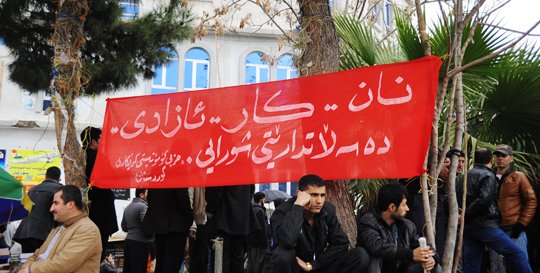 نان - کار - ئازادی -
دەسەڵاتدارێتی شورایی .. حزبی کۆمۆنیستی کرێکاری
کوردستان